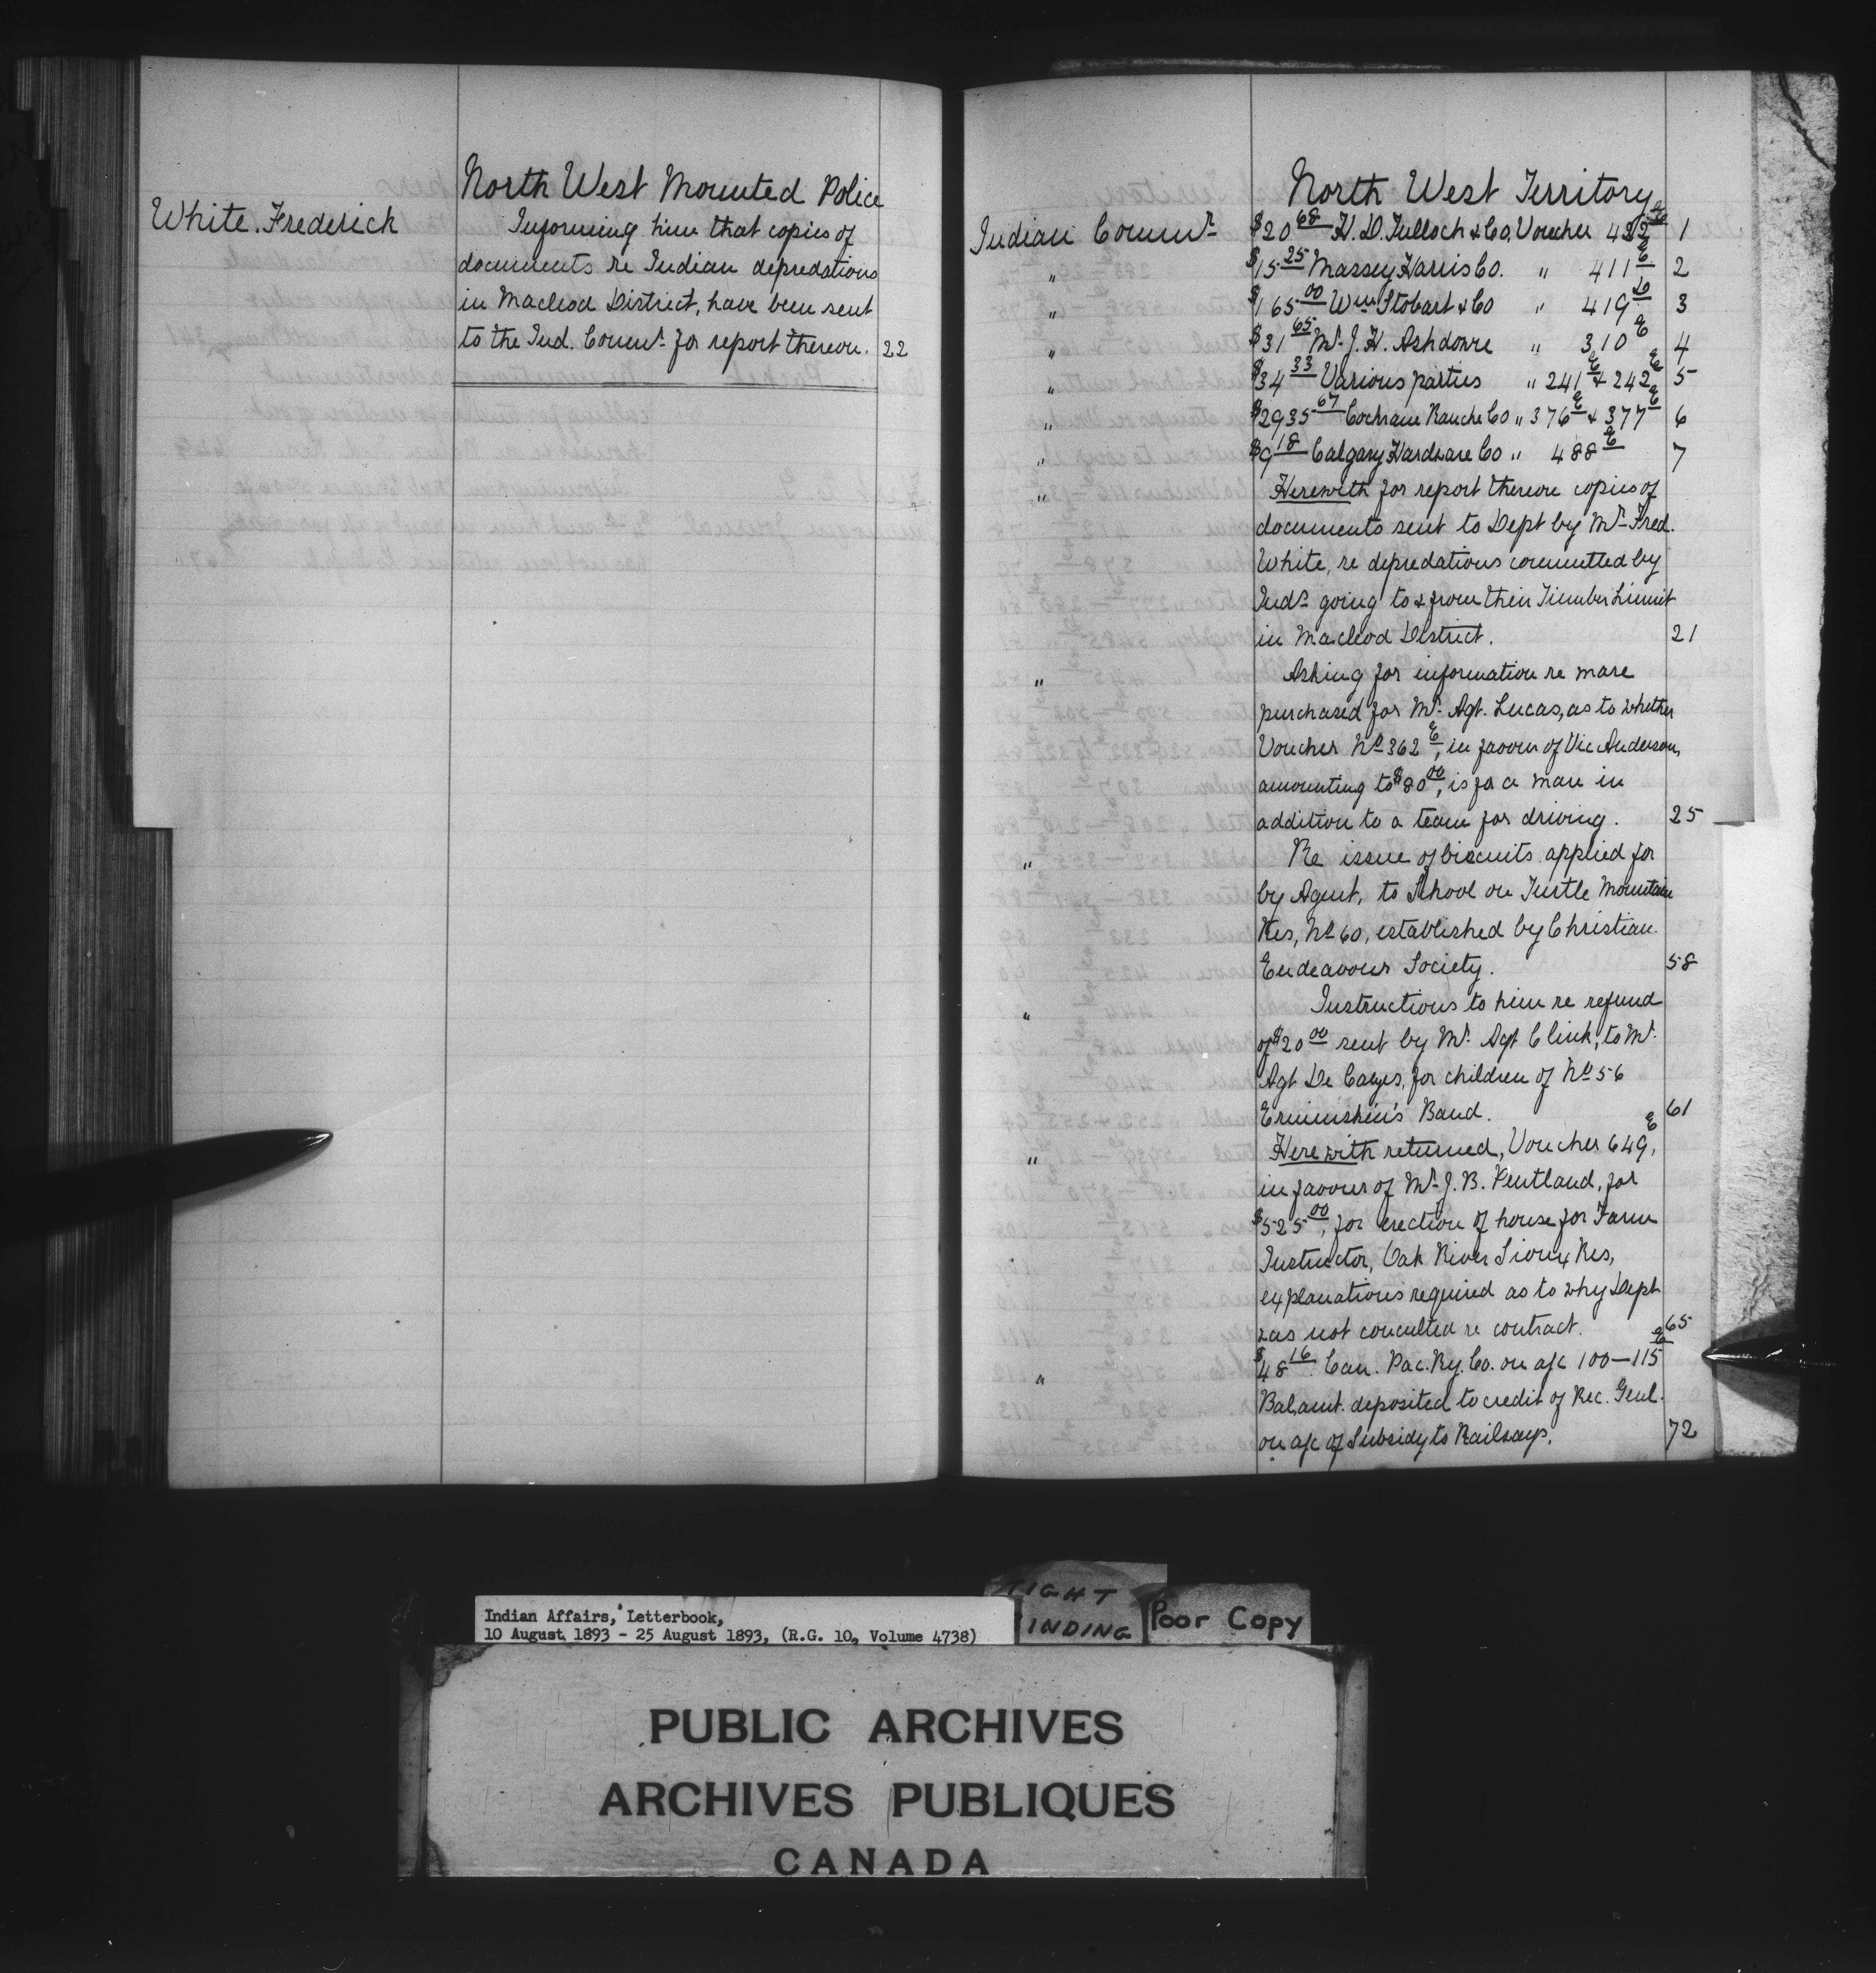 North West Mounted Police
White. Frederick
Informing him that copies of
documents re Indian depredations
in Macleod District, have been sent
to the Ind. Commr. for report thereon. 22
North West Territory
Indian Commr. $20 68 H. D. Tulloch & Co, Voucher 1
" $15 25 Massey Harris Co. " 411 E 2
" $165 00 Wm Stobart & Co " 419 3
" $31 65 Mr. J. H. Ashdowne " 310 E 4
" $34 33 Various parties " 241 E & 242 E 5
" $2935 67 Cochrane Ranche Co " 376 E & 377 E 6
" $9 18 Calgary Hardware Co " 488 E 7
" Herewith for report thereon copies of
documents sent to Dept by Mr. Fred.
White, re depredations committed by
Inds. going to & from their Timber Limit
in Macleod District. 21
" Asking for information re mare
purchased for Mr. Agt. Lucas, as to whether
Voucher No 362 E, in favour of Vic Anderson,
amounting to $80 00, is for a mare in
addition to a team for driving. 25
" Re issue of biscuits applied for
by Agent, to School on Turtle Mountain
Res, No 60, established by Christian
Endeavour Society. 58
" Instructions to him re refund
of $20 00 sent by Mr. Agt Clink, to Mr.
Agt De Cazes, for children of No 56
Ermineskin's Band. 61
" Herewith returned, Voucher 649 E,
in favour of Mr. J. B. Pentland, for
$525 00, for erection of house for Farm
Instructor, Oak River Sioux Res,
explanations required as to why Dept
was not consulted re contract. 65
" $48 16 Can. Pac. Ry. Co. on a/c 100–115 E
Bal. amt. deposited to credit of Rec. Genl.
on a/c of Subsidy to Railways. 72
Indian Affairs, Letterbook,
10 August 1893 - 25 August 1893, (R.G. 10, Volume 4738)
TIGHT
BINDING
Poor Copy
PUBLIC ARCHIVES
ARCHIVES PUBLIQUES
CANADA